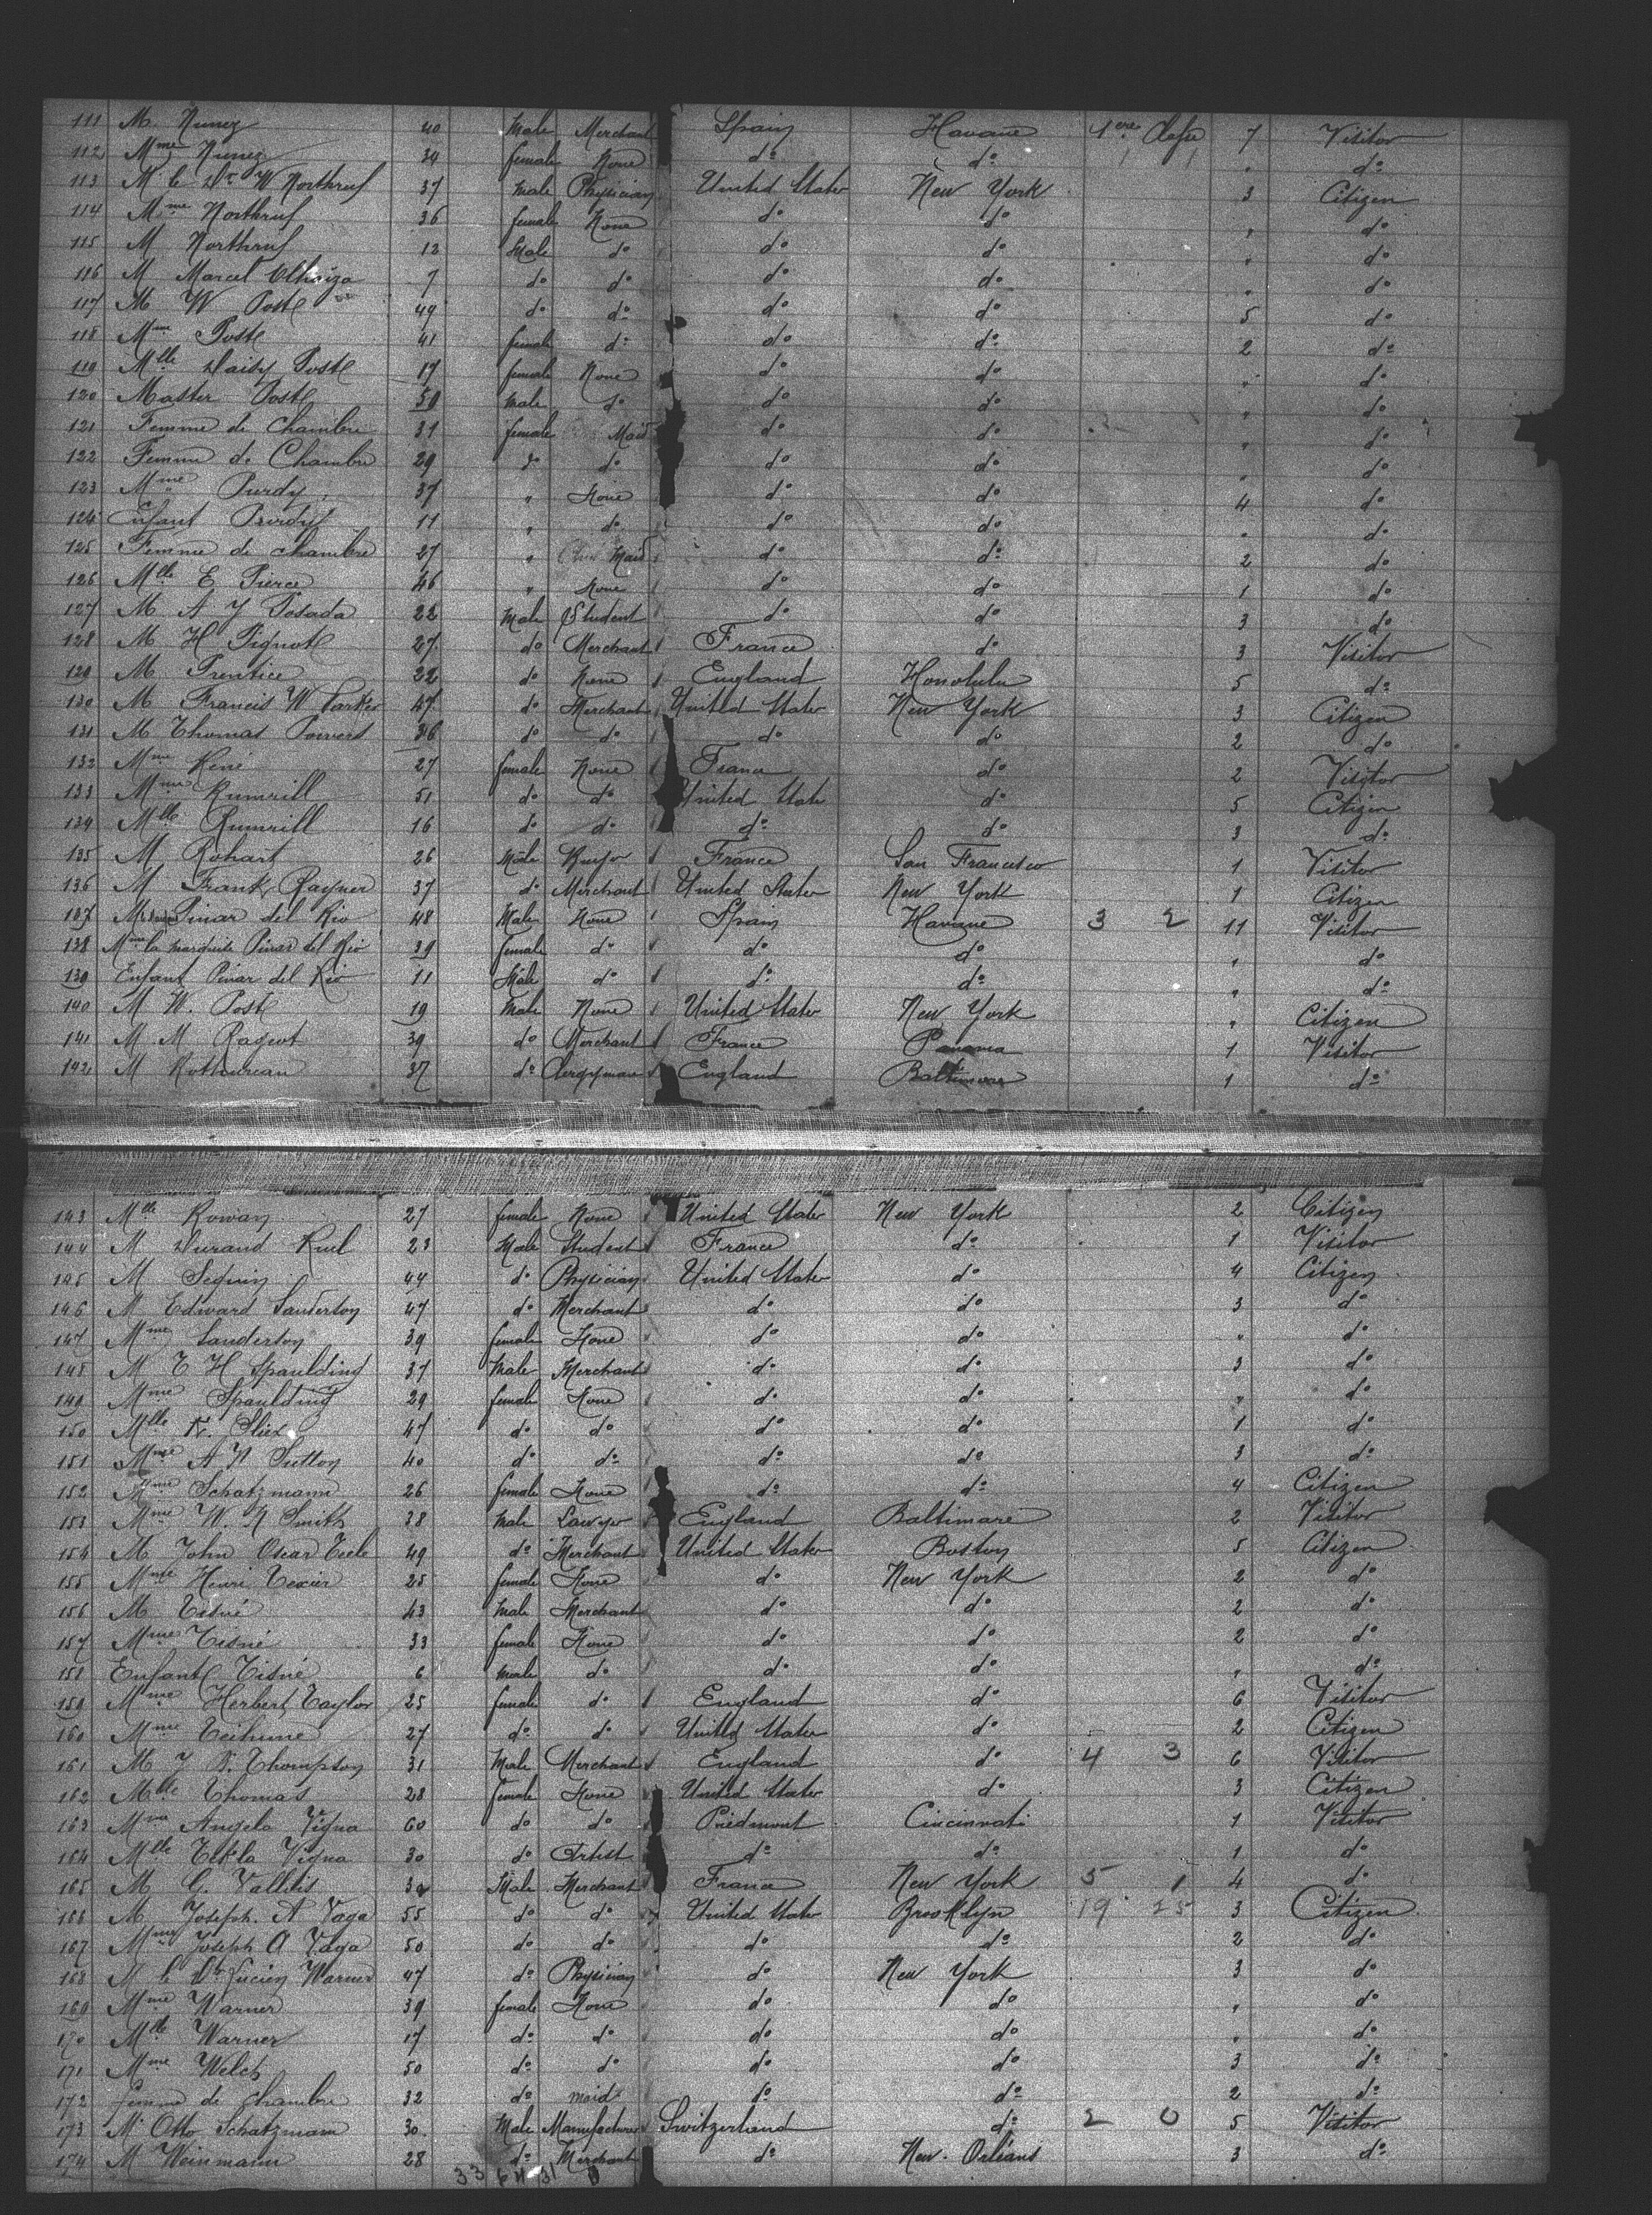 111 M. Nunez 40 Male Merchant Spain Havane 1ere Classe 7 Visitor
112 Mme Nunez 34 female None do do " do
113 M le Dr W Northruf 37 Male Physician United States New York 3 Citizen
114 Mme Northruf 36 female None do do " do
115 M Northruf 12 Male do do do " do
116 M Marcel 7 do do do do " do
117 M W Post 49 do do do do 5 do
118 Mme Post 41 female do do do 2 do
119 Mlle Daisy Post 17 female None do do " do
120 Master Post male do do do " do
121 Femme de Chambre 31 female Maid do do " do
122 Femme de Chambre 29 do do do do " do
123 Mme Purdy 37 " None do do 4 do
124 Enfant Purdy 11 " do do do " do
125 Femme de chambre 27 " Maid do do 2 do
126 Mlle E Pierce 46 " None do do 1 do
127 M A J Posada 22 Male Student do do 3 do
128 M H Pignot 27 do Merchant France do 3 Visitor
129 M Prentice 22 do None England Honolulu 5 do
130 M Francis W Parker 47 do Merchant United States New York 3 Citizen
131 M Thomas Powers 36 do do do do 2 do
132 Mme René 27 female None France do 2 Visitor
133 Mme Rumrill 51 do do United State do 5 Citizen
134 Mlle Rumrill 16 do do do do 3 do
135 M Rohart 26 Male Buyer France San Francisco 1 Visitor
136 M Frank Rayner 37 do Merchant United States New York 1 Citizen
137 M Pinar del Rio 48 Male None Spain Havane 3 2 11 Visitor
138 Mme la marquise Pinar del Rio 39 female do do do " do
139 Enfant Pinar del Rio 11 Male do do do " do
140 M W. Post 19 Male None United States New York " Citizen
141 M M Rageot 39 do Merchant France Panama 1 Visitor
142 M Rothureau 37 do Clergyman England Baltimore 1 do
143 Mlle Rowan 27 female None United States New York 2 Citizen
144 M Durand Ruel 23 Male Student France do 1 Visitor
145 M Seguin 44 do Physician United States do 4 Citizen
146 M Edward Sanderton 47 do Merchant do do 3 do
147 Mme Sanderton 39 female None do do " do
148 M E H Spaulding 37 Male Merchant do do 3 do
149 Mme Spaulding 29 female None do do " do
150 Mlle 47 do do do do 1 do
151 Mme A N Sutton 40 do do do do 3 do
152 Mme Schatzmann 26 female None do do 4 Citizen
153 Mme W. N Smith 38 Male Lawyer England Baltimore 2 Visitor
154 M John Oscar Teele 49 do Merchant United States Boston 5 Citizen
155 Mme Henri Texier 25 female None do New York 2 do
156 M Tisné 43 Male Merchant do do 2 do
157 Mme Tisné 33 female None do do 2 do
158 Enfant Tisné 6 male do do do " do
159 Mme Herbert Taylor 25 female do England do 6 Visitor
160 Mme 27 do do United States do 2 Citizen
161 M J Thompson 31 Male Merchant England do 4 3 6 Visitor
162 Mlle Thomas 28 female None United States do 3 Citizen
163 Mme Angela Vigna 60 do do Piedmont Cincinnati 1 Visitor
164 Mlle Tekla Vigna 30 do Artist do do 1 do
165 M G. Valletis Male Merchant France New York 5 1 4 do
166 M Joseph. A Vaga 55 do do United States Brooklyn 19 25 3 Citizen
167 Mme Joseph A Vaga 50 do do do do 2 do
168 M le Dr Lucien Warner 47 do Physician do New York 3 do
169 Mme Warner 39 female None do do " do
170 Mlle Warner 17 do do do do " do
171 Mme Welch 50 do do do do 3 do
172 femme de chambre 32 do maid do do 2 do
173 M Otto Schatzmann 30 Male Manufacturer Switzerland do 2 0 5 Visitor
174 M Weinmann 28 do Merchant do New. Orléans 3 do
33 64 31